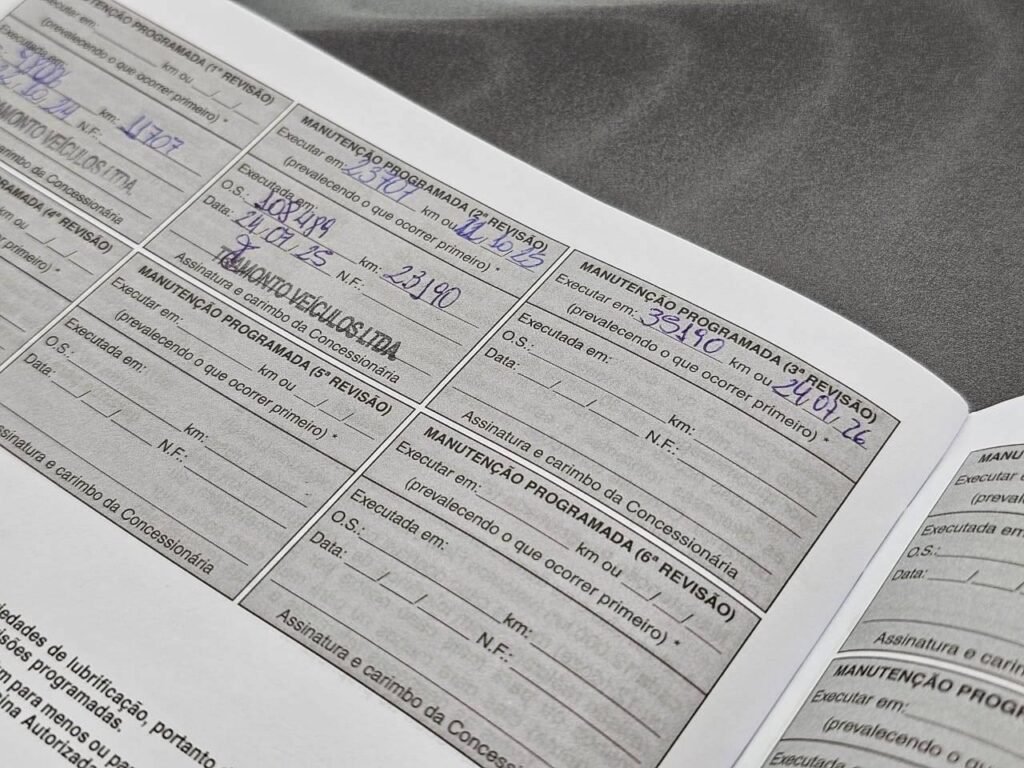 Executar em: km ou / /
(prevalecendo o que ocorrer primeiro) *
MANUTENÇÃO PROGRAMADA (1ª REVISÃO)
Executada em:
10.24 km: 11707
AMONTO VEÍCULOS LTDA.
carimbo da Concessionária
MANUTENÇÃO PROGRAMADA (2ª REVISÃO)
Executar em: 23707 km ou 11.10.25
(prevalecendo o que ocorrer primeiro) *
Executada em:
O.S.: 108489
Data: 24.07.25 km: 23190
N.F.:
TRAMONTO VEÍCULOS LTDA.
Assinatura e carimbo da Concessionária
MANUTENÇÃO PROGRAMADA (3ª REVISÃO)
Executar em: 35190 km ou 24.07.26
(prevalecendo o que ocorrer primeiro) *
Executada em:
O.S.: km:
Data: / / N.F.:
Assinatura e carimbo da Concessionária
(4ª REVISÃO)
km ou / /
primeiro) *
MANUTENÇÃO PROGRAMADA (5ª REVISÃO)
Executar em: km ou / /
(prevalecendo o que ocorrer primeiro) *
Executada em:
O.S.: km:
Data: / / N.F.:
Assinatura e carimbo da Concessionária
MANUTENÇÃO PROGRAMADA (6ª REVISÃO)
Executar em: km ou / /
(prevalecendo o que ocorrer primeiro) *
Executada em:
O.S.: km:
Data: / / N.F.:
Assinatura e carimbo da Concess
ssinatura e carimbo da Concessionária
edades de lubrificação, portanto
sões programadas.
m para menos ou pa
ina Autorizad
MANU
Executar em:
(preval
Executada em
O.S.:
Data: / /
Assinatura e carim
MANUTENÇÃO PROG
Executar em:
(prevalecendo o q
Executada em: